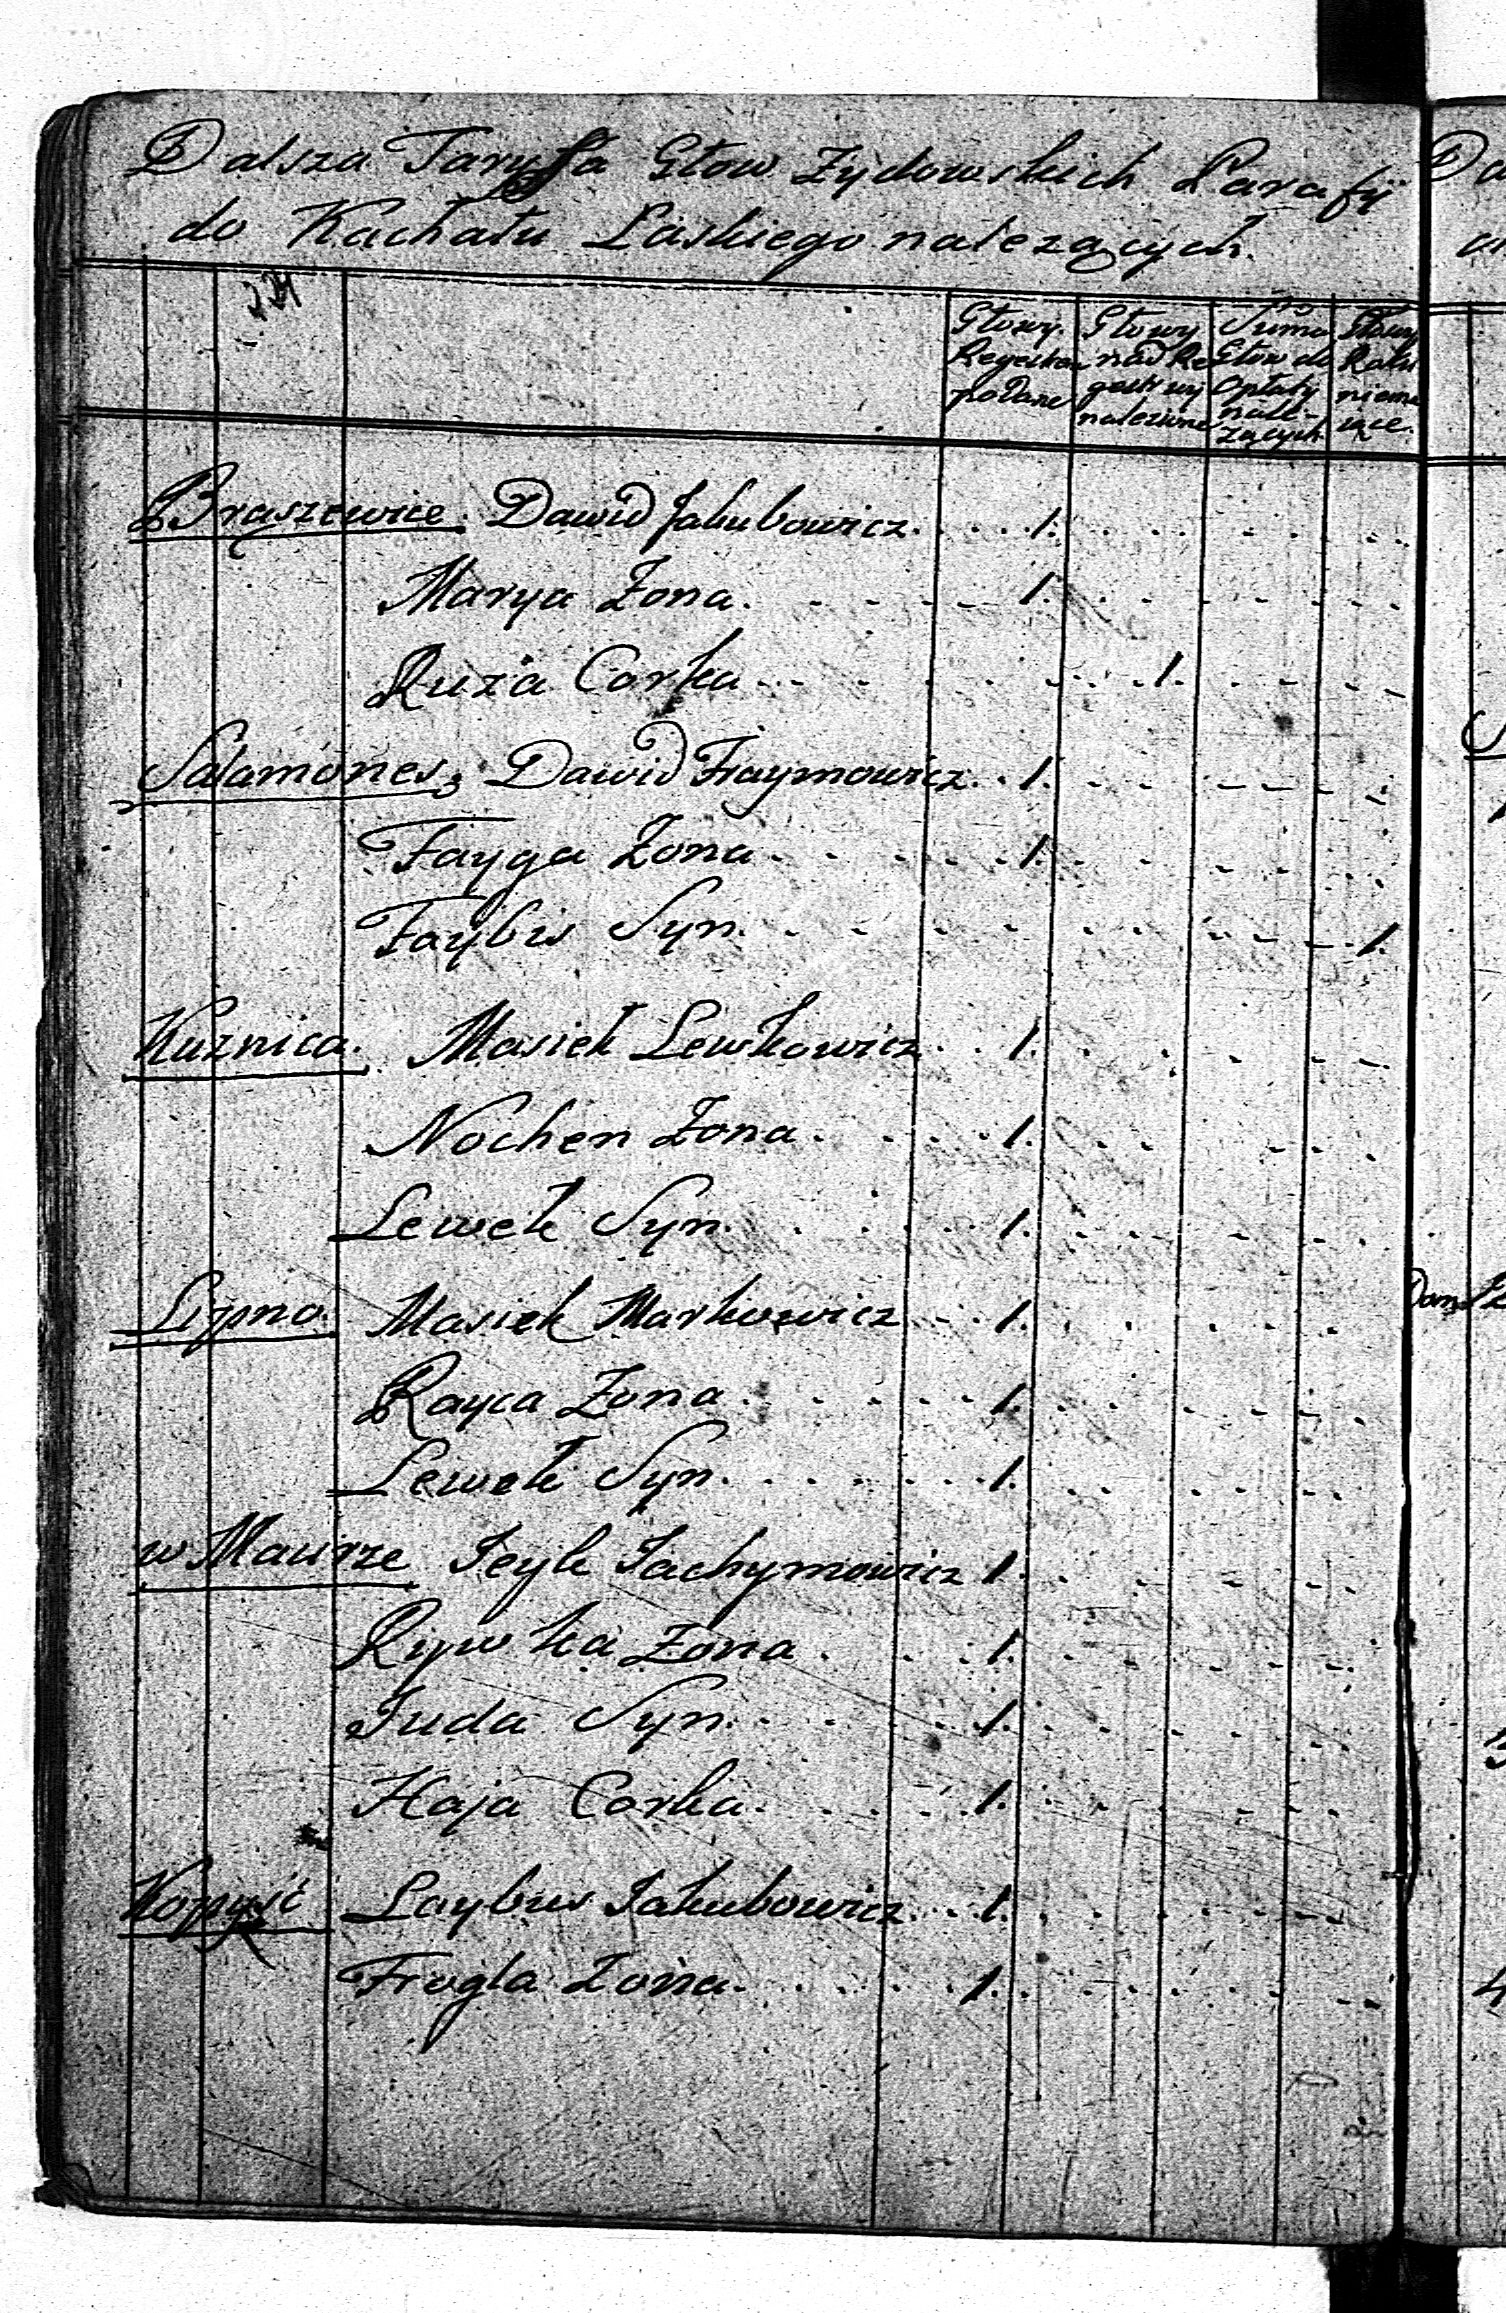 Dalsza Taryffa Głow Zydowskich Parafÿ
do Kachału Łaskiego nalezących.
Głowy Regestrem podane
Głowy nad Regestr wy nalezione
Suma Głow do Opłaty nale-zących
Głowy Roku niema iące.
Braszewice. Dawid Jakubowicz. 1.
Marya Zona. 1.
Ruza Corka 1.
Salamones, Dawid Fraymowicz. 1.
Fayga Zona 1.
Faybis Syn. 1.
Kuznica. Masiek Lewkowicz 1.
Nochen Zona. 1.
Lewek Syn. 1.
Lipno. Masiek Markowicz 1.
Rayca Zona 1.
Lewek Syn. 1.
w Maurze Jeyk Jachymowicz 1.
Rywka Zona. 1.
Juda Syn. 1.
Haja Corka. 1.
Kopyść Laybus Jakubowicz 1.
Frogla Zona. 1.